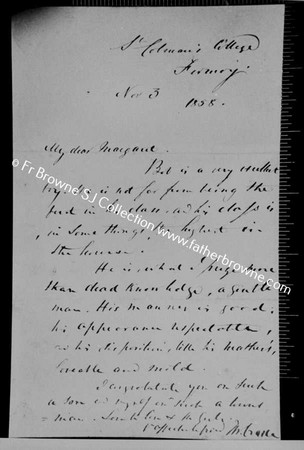 St Colman's College
Fermoy
Nov 3
1858.
My dear Margaret
Bob is a very excellent
boy. He is not far from being the
best in his class and his class is
, in some things, the highest in
the house.
He is what I prize more
than dead knowledge, a gentle
man. His manner is good,
his appearance respectable,
his disposition, like his mother's,
loveable and mild.
I congratulate you on such
a son & myself on such a
man.
© Fr Browne SJ Collection / www.fatherbrowne.com